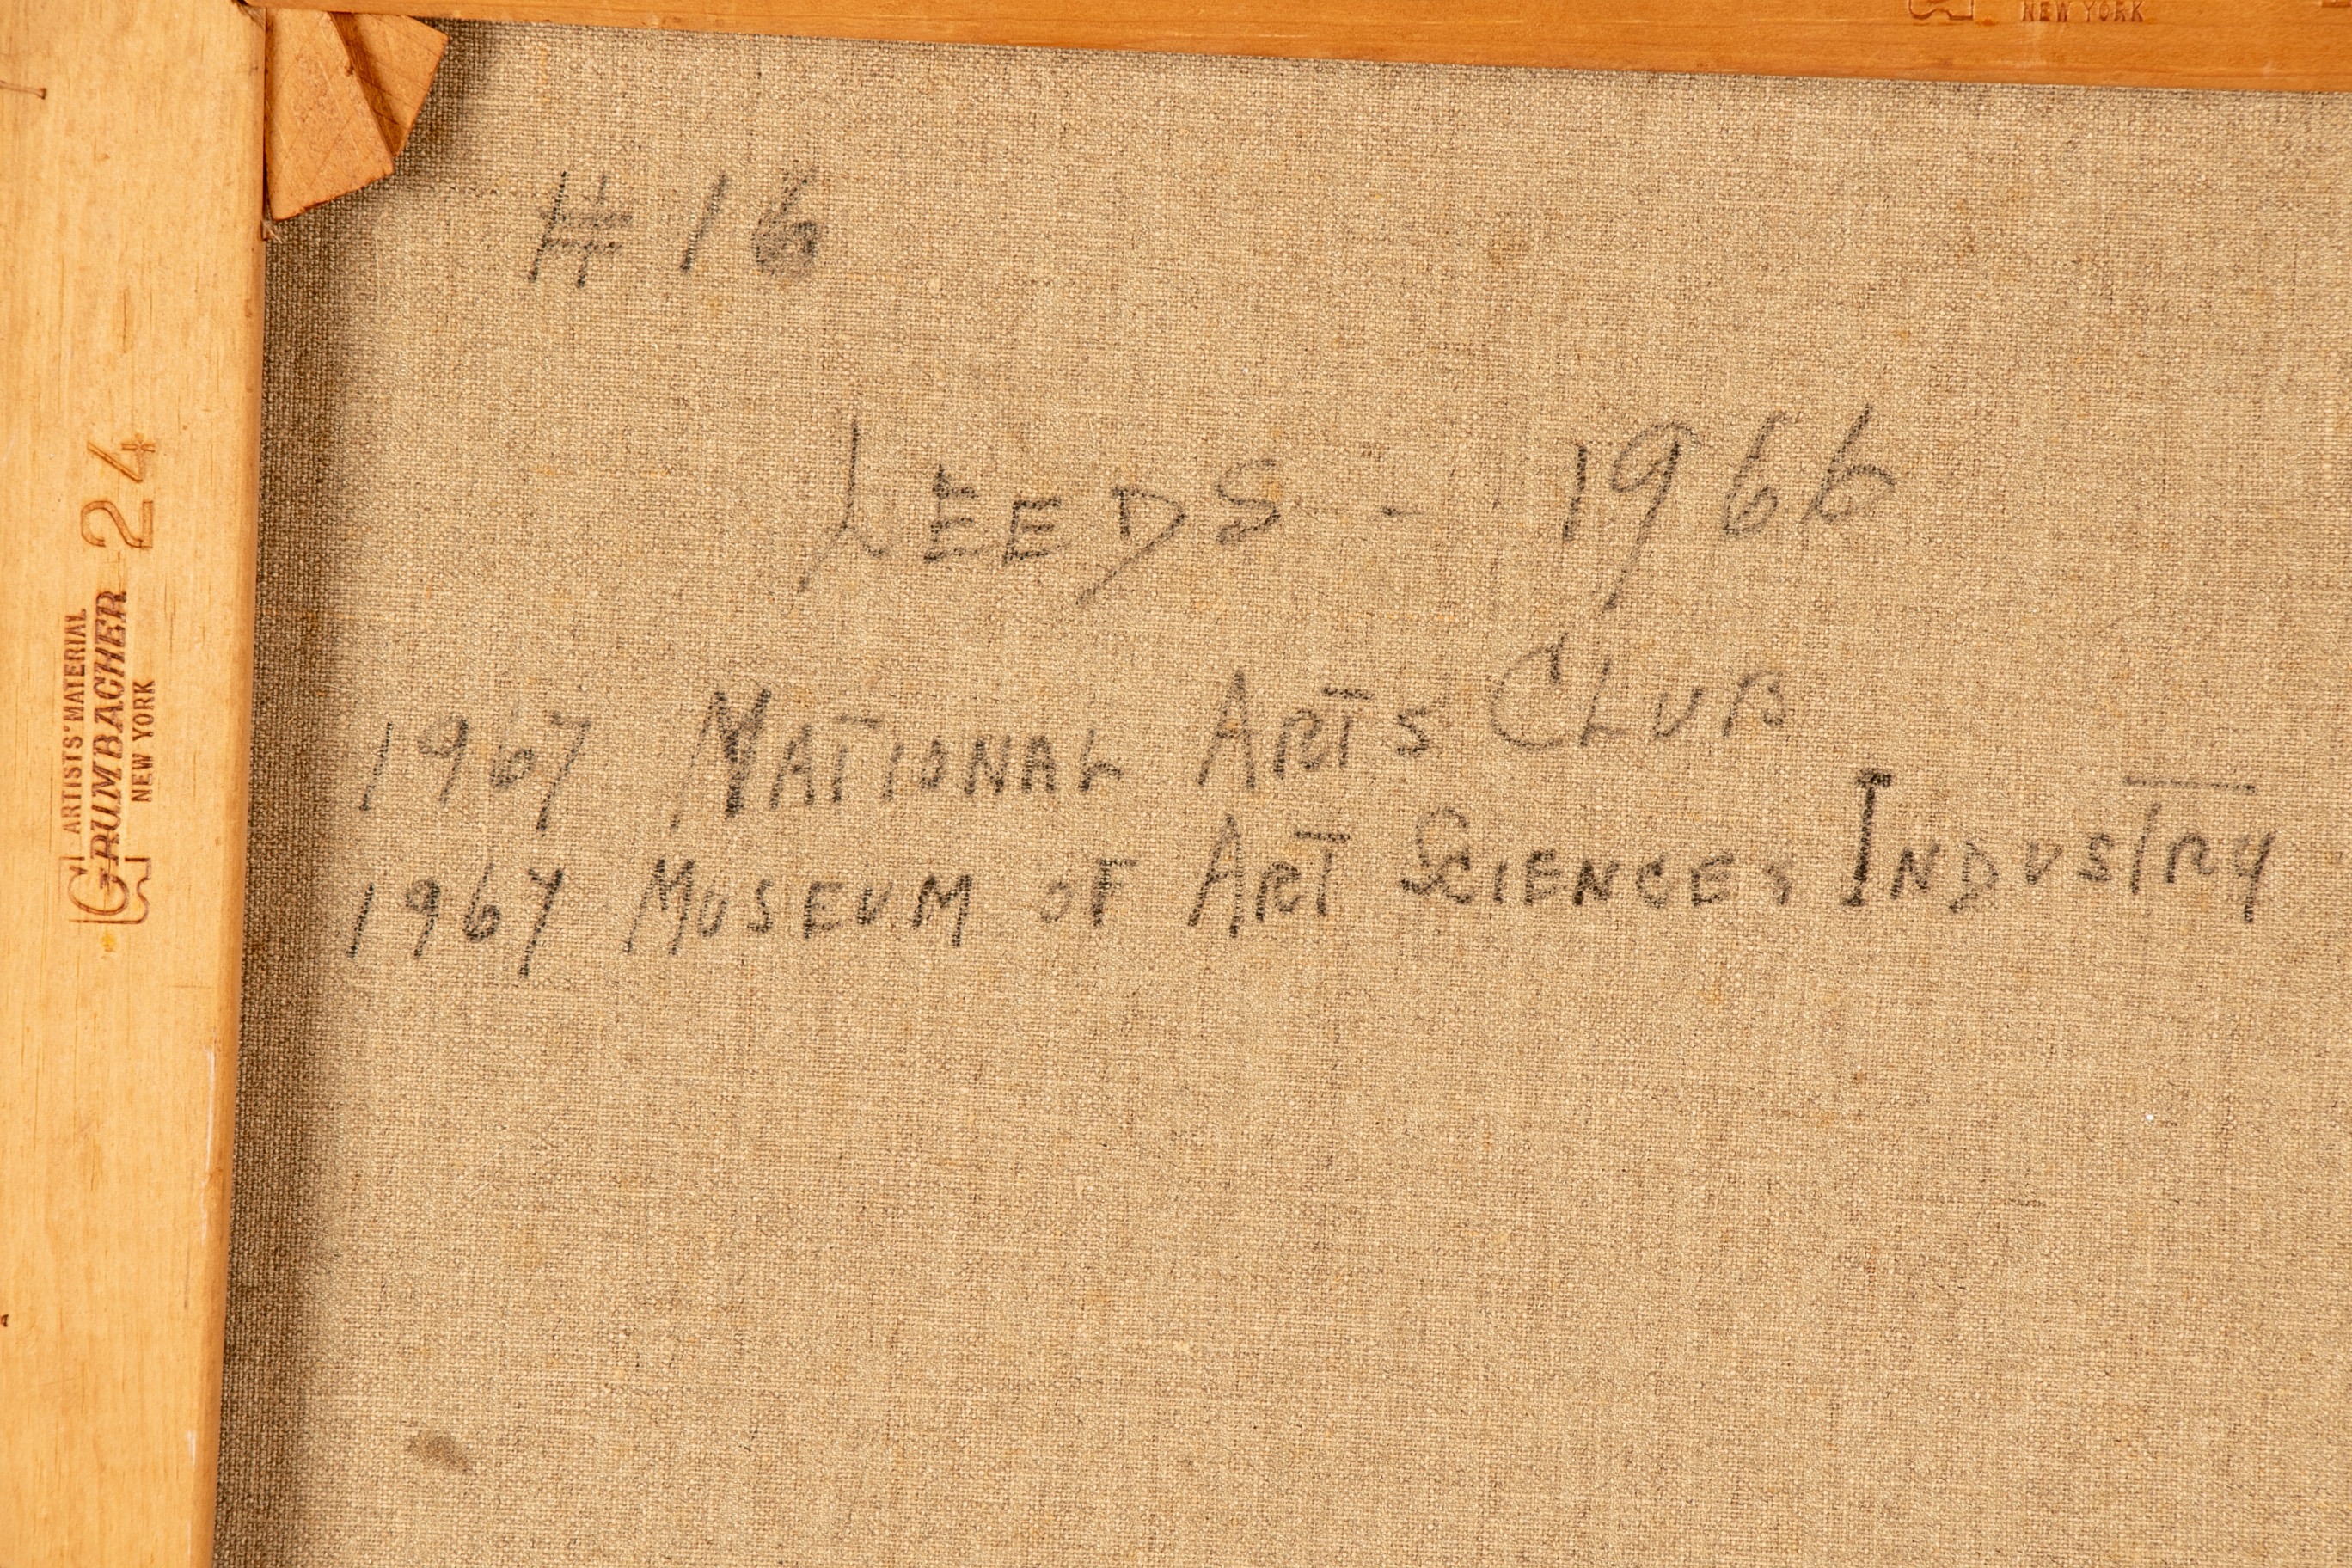 NEW YORK
# 16
LEEDS - 1966
1967 NATIONAL ARTS CLUB
1967 MUSEUM OF ART SCIENCE & INDUSTRY
24
ARTISTS' MATERIAL
GRUMBACHER
NEW YORK